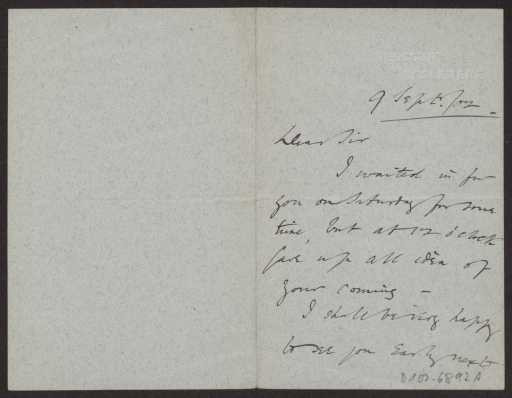 9 Sept.
Dear Sir
I waited in for
you on Saturday for some
time, but at 12 o'clock
gave up all idea of
your coming –
I shall be very happy
to see you early next